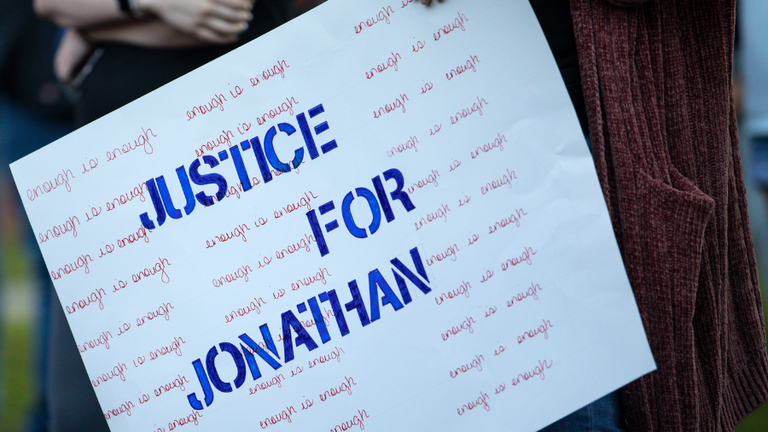 enough is enough
enough is enough
enough is enough
enough is enough
enough is enough
enough is enough
enough is enough
enough is enough
JUSTICE
FOR
JONATHAN
enough is enough
enough is enough
enough is enough
enough is enough
enough is enough
enough is enough
enough is enough
enough is enough
enough is enough
enough is enough
enough is enough
enough is enough
enough is enough
enough is enough
enough is enough
enough is enough
enough is enough